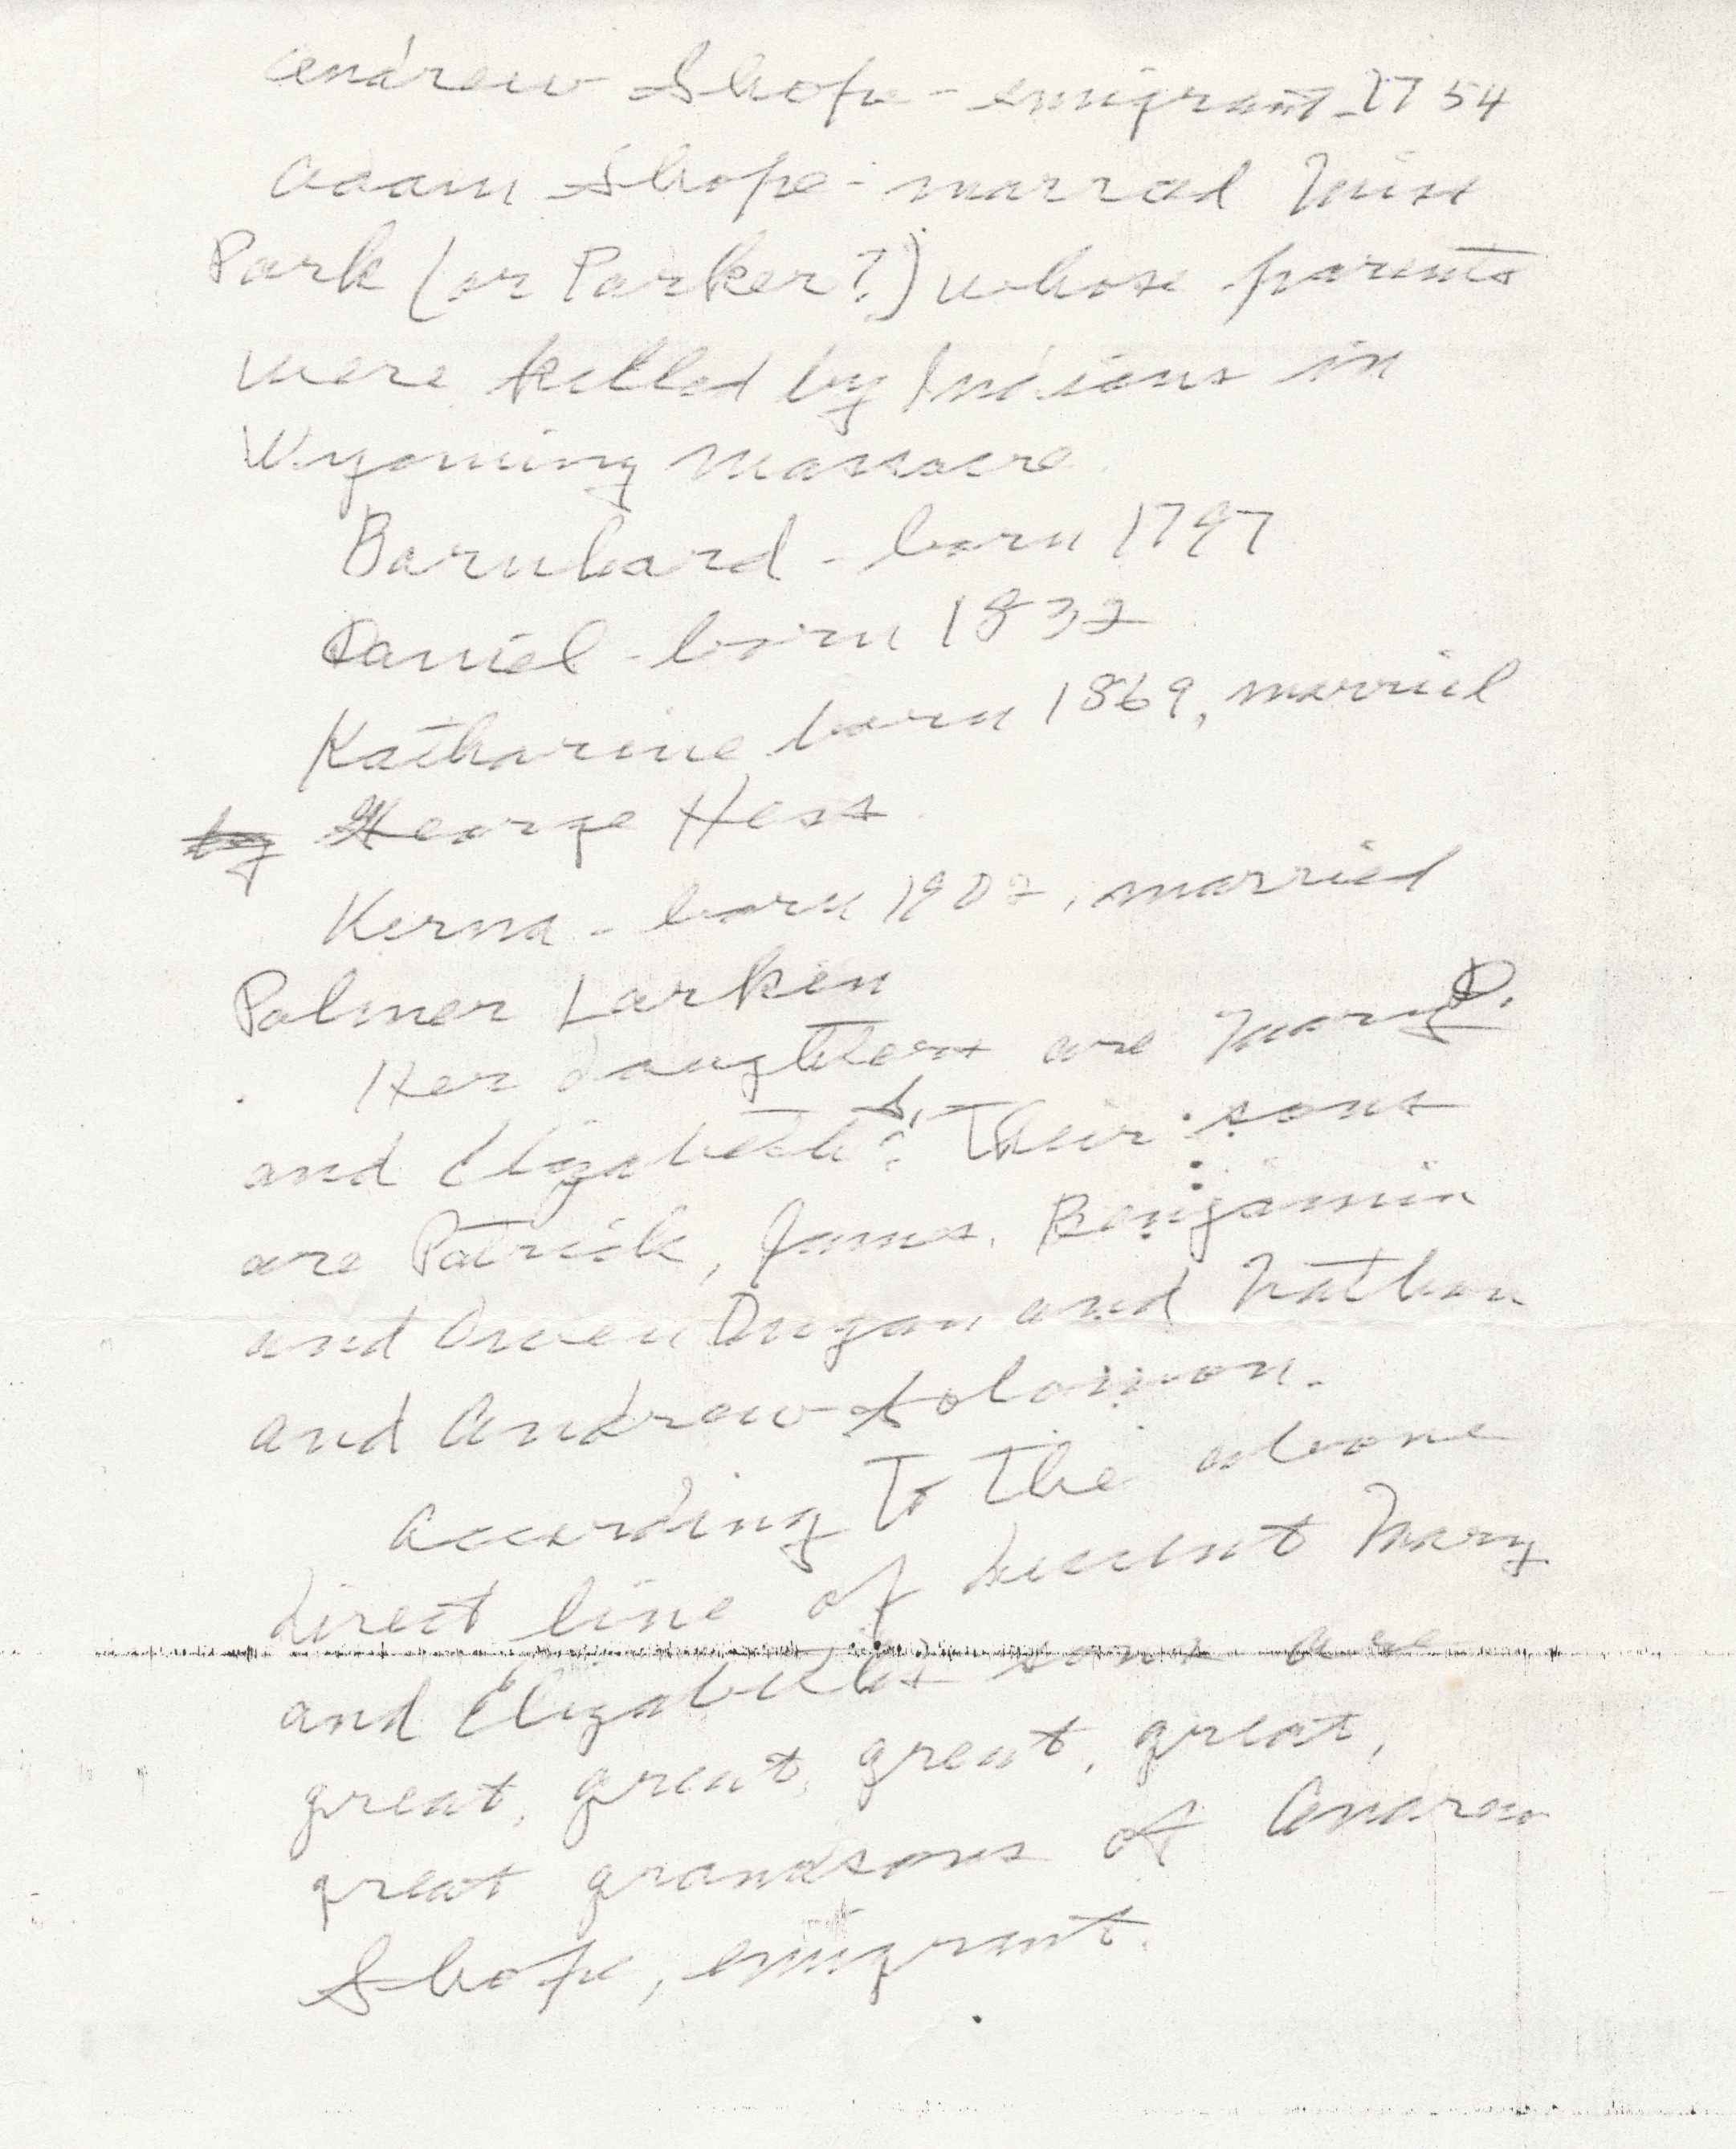 Andrew Shope - emigrant - 1754
Adam Shope - married Miss
Park (or Parker?) whose parents
were killed by Indians in
Wyoming Massacre.
Barnhard - born 1797
Daniel - born 1832
Katharine born 1869, married
by George Hess.
Kerna - born 1902, married
Palmer Larken
Her daughters are Mary D.
and Elizabeth S. Their sons
are Patrick, James, Benjamin
and Owen Dugan and Nathan
and Andrew Solomon.
According to the above
direct line of descent Mary
and Elizabeth's sons are
great, great, great, great,
great grandsons of Andrew
Shope, emigrant.